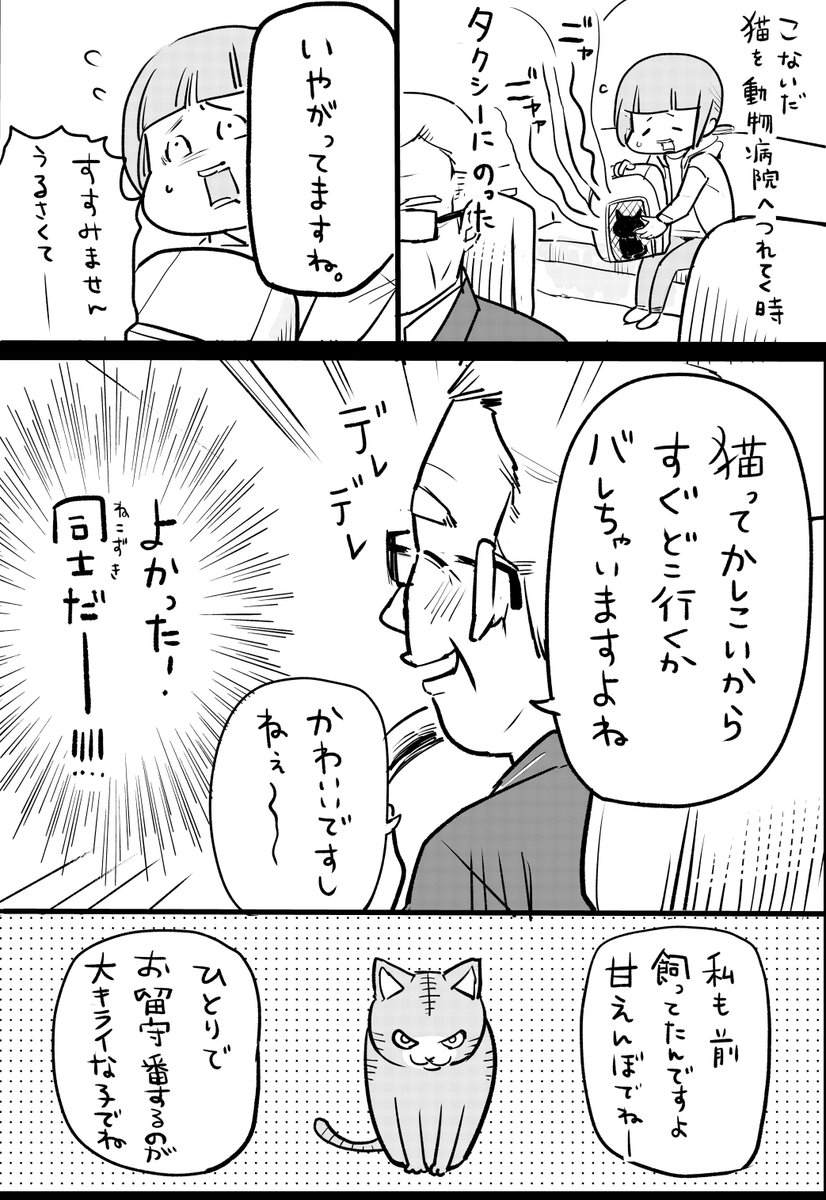 こないだ
猫を動物病院へつれてく時
ニャァ
ニャァァ
タクシーにのった
いやがってますね。
すすみません
うるさくて――
猫ってかしこいから
すぐどこ行くか
バレちゃいますよね
デレ
デレ
かわいいですし
ねぇ〜〜
よかった!
ねこずき
同士だ――!!!!
私も前
飼ってたんですよ
甘えんぼでねー
ひとりで
お留守番するのが
大キライな子でね